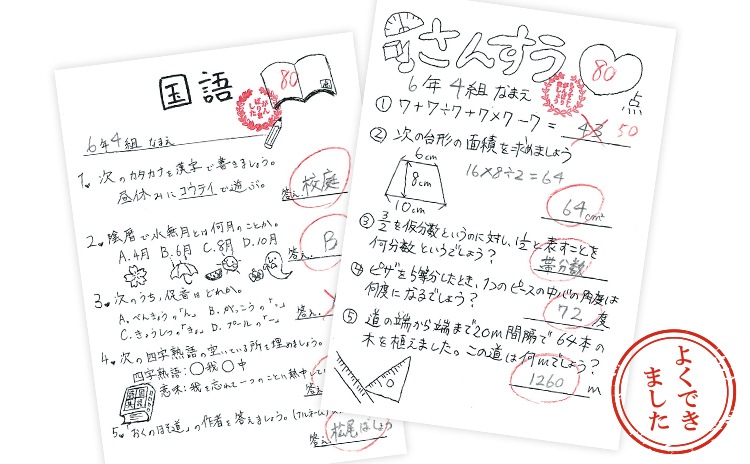 国語
80
がんばりました
6年4組 なまえ
1. 次のカタカナを漢字で書きましょう。
昼休みにコウテイで遊ぶ。
答え. 校庭
2. 陰暦で水無月とは何月のことか。
A.4月 B.6月 C.8月 D.10月
答え. B
3. 次のうち、促音はどれか。
A. べんきょうの「ん」 B. がっこうの「っ」
C. きょうしつの「きょ」 D. プールの「ー」
答え.
4. 次の四字熟語の空いている所を埋めましょう。
四字熟語:〇我〇中
意味:我を忘れて一つのことに熱中してい
答え.
5. 「おくのほそ道」の作者を答えましょう。(フルネーム)
答え. 松尾ばしょう
さんすう
80
点
6年4組 なまえ
① 7+7÷7+7×7-7= 43 50
② 次の台形の面積を求めましょう
6cm
8cm
10cm
16×8÷2=64
64cm²
③ 3/2を仮分数というのに対し、1 1/2と表すことを
何分数というでしょう?
帯分数
④ ピザを5等分したとき、1つのピースの中心の角度は
何度になるでしょう?
72度
⑤ 道の端から端まで20m間隔で64本の
木を植えました。この道は何mでしょう?
1260 m
よくでき
ました